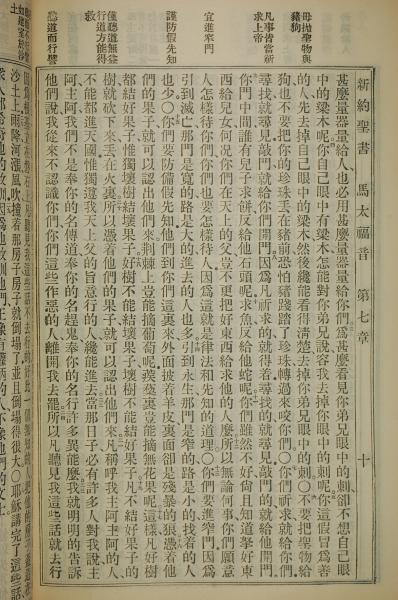 新約聖書 馬太福音 第七章 十
毋拋聖物與豬狗
凡事皆當祈求上帝
宜進窄門
謹防假先知
僅聽道無益行道方能得救
聽道而行譬
甚麼量器量給人也必用甚麼量器量給你們爲甚麼看見你弟兄眼中的刺卻不想自己眼
中的梁木呢你自己眼中有梁木怎能對你弟兄說容我去掉你眼中的刺呢你這假冒爲善
的人先去掉自己眼中的梁木然後纔能看得清楚去掉你弟兄眼中的刺〇不要把聖物給
狗也不要把你的珍珠丟在豬前恐怕豬踐踏了珍珠轉過來咬你們〇你們祈求就給你們
尋找就尋見敲門就給你們開門因爲凡祈求的就得着尋找的就尋見敲門的就給他開門
你們中間誰有兒子求餅反給他石頭呢求魚反給他蛇呢你們雖然不好尚且知道拏好東
西給兒女何況你們在天上的父豈不更把好東西給求他的人麼所以無論何事你們願意
人怎樣待你們你們也要怎樣待人因爲這就是律法和先知的道理〇你們要進窄門因爲
引到滅亡那門是寬的路是大的進去的人也多引到永生那門是窄的路是小的找着的人
也少〇你們要防備假先知他們到你們這裏來外面披着羊皮裏面卻是殘暴的狼憑着他
們的果子就可以認出他們來荊棘上豈能摘葡萄呢蒺藜裏豈能摘無花果呢這樣凡好樹
都結好果子惟獨壞樹結壞果子好樹不能結壞果子壞樹不能結好果子凡不結好果子的
樹就砍下來丟在火裏所以憑着他們的果子就可以認出他們來凡稱呼我主阿主阿的人
不能都進天國惟獨遵我天上父的旨意行的人纔能進去當那日子必有許多人對我說主
阿主阿我們不是奉你的名傳道奉你的名趕鬼奉你的名行許多異能麼我就明明的告訴
他們說我從來不認識你們你們這些作惡的人離開我去罷所以凡聽見我這些話就去行
沙土上雨降河漲風吹撞着那房子房子就倒塌了並且倒塌得很大〇耶穌講完了這些話
衆人都希奇他的教訓因爲他教訓他們正像有權柄的人不像他們的文士